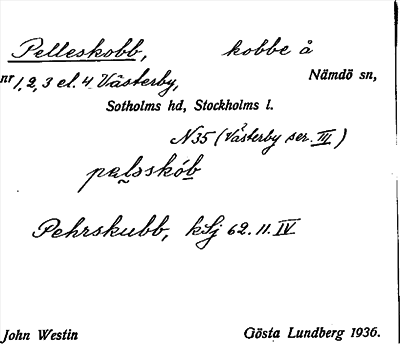 Pelleskobb, kobbe å
nr 1, 2, 3 el. 4 Västerby, Nämdö sn,
Sotholms hd, Stockholms l.
N35 (Västerby ser. III)
palsskób
Pehrskubb, kSj 62. 11. IV
John Westin Gösta Lundberg 1936.